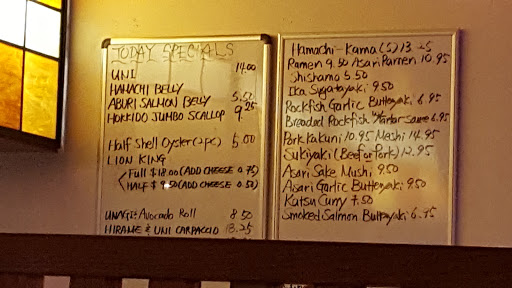 TODAY SPECIALS
UNI 14.00
HAMACHI BELLY
ABURI SALMON BELLY 5.50
HOKKIDO JUMBO SCALLOP 9.25
Half Shell Oyster (2PC) 5.00
LION KING
Full $18.00 (ADD CHEESE 0.75)
HALF $ 9.50 (ADD CHEESE 0.50)
UNAGI & Avocado Roll 8.50
HIRAME & UNI CARPACCIO 18.25
Hamachi-Kama (S) 13.25
Ramen 9.50 Asari Ramen 10.95
Shishamo 5.50
Ika Sugatayaki 9.50
Rockfish Garlic Butteryaki 6.95
Breaded Rockfish w/tartar sauce 6.95
Pork Kakuni 10.95 Meshi 14.95
Sukiyaki (Beef or Pork) 12.95
Asari Sake Mushi 9.50
Asari Garlic Butteryaki 9.50
Katsu Curry 7.50
Smoked Salmon Butteryaki 6.95